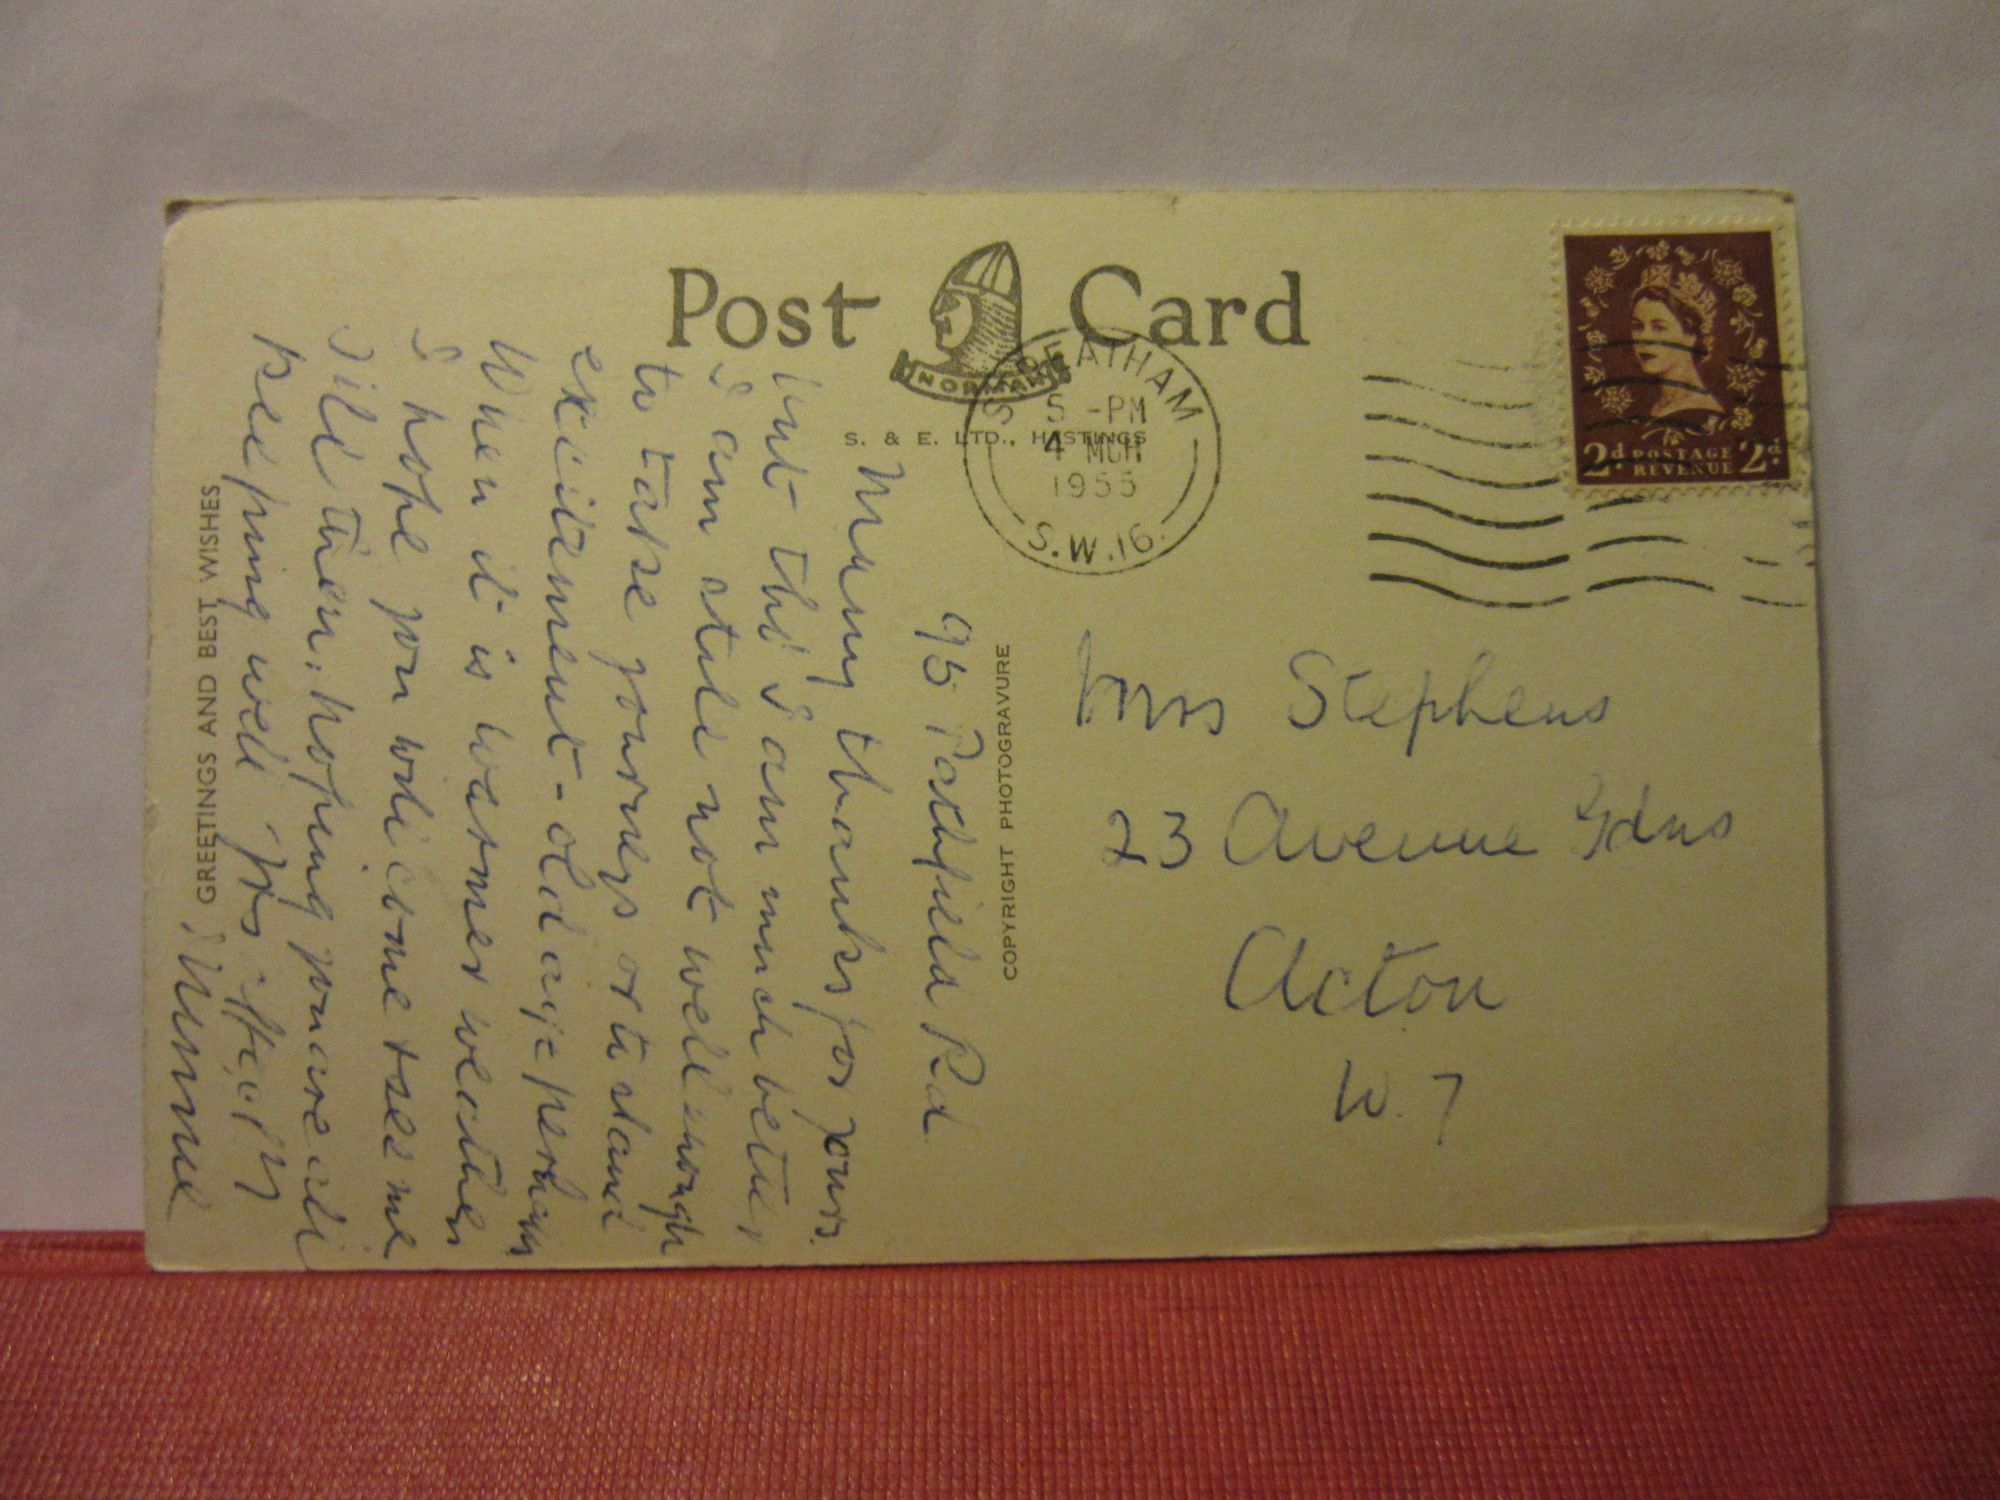 Post Card
NORMAN
S. & E. LTD., HASTINGS
STREATHAM
5 - PM
4 MCH
1955
S.W.16.
2d POSTAGE 2d
REVENUE
GREETINGS AND BEST WISHES
COPYRIGHT PHOTOGRAVURE
95 Rd
Many thanks for yours.
but I am much better
I am still not well enough
to take journeys or to stand
excitement - old age perhaps
When it is warmer weather
I hope you will come & see me
Till then, hoping you are all
keeping well Yrs affectly
Minnie
Mrs Stephens
23 Avenue Gdns
Acton
W. 7